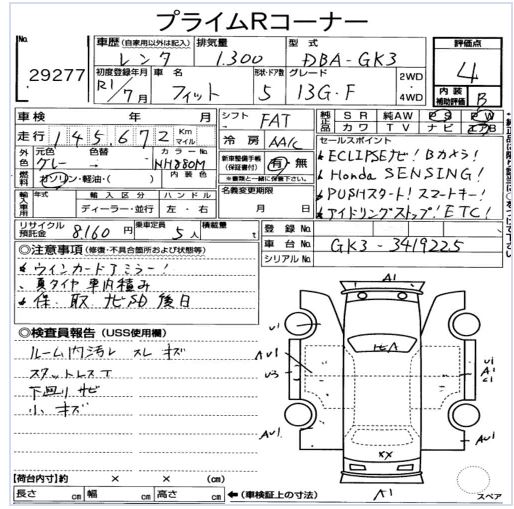 プライムRコーナー
No.
29277
車歴 (自家用以外は記入)
レンタ
排気量
1.300
型式
DBA-GK3
評価点
4
初度登録年月
R1/7月
車名
フィット
形状・ドア数
5
グレード
13G・F
2WD
・
4WD
内装
補助評価
B
車検 年 月
シフト FAT
純正品
SR 純AW PS PW
カワ TV ナビ エアB
走行 145,672 Km マイル
冷房 AAC
セールスポイント
ECLIPSEナビ! Bカメラ!
Honda SENSING!
PUSHスタート! スマートキー!
アイドリングストップ! ETC!
外色
元色
グレー
色替
カラーNo.
NH880M
新車整備手帳
(保証書付)
有・無
燃料
ガソリン・軽油・( )
内装色
名義変更期限
月 日
輸入車用
年式
輸入区分
ディーラー・並行
ハンドル
左・右
リサイクル預託金
8160 円
乗車定員
5人
積載量
t
登録No.
車台No.
GK3-3419225
シリアルNo.
◎注意事項 (修復・不具合箇所および状態等)
ウインカードアミラー!
真タイヤ車内積み
保、取、ナビSD後日
◎検査員報告 (USS使用欄)
ルーム内汚レ スレ キズ
スタットレスT
下回リサビ
小キズ
A1
U1
AU1
U3
U1
A1
C1
AU1
AU1
XX
A1
スペア
【荷台内寸】約 × × (cm)
長さ cm 幅 cm 高さ cm
←(車検証上の寸法)